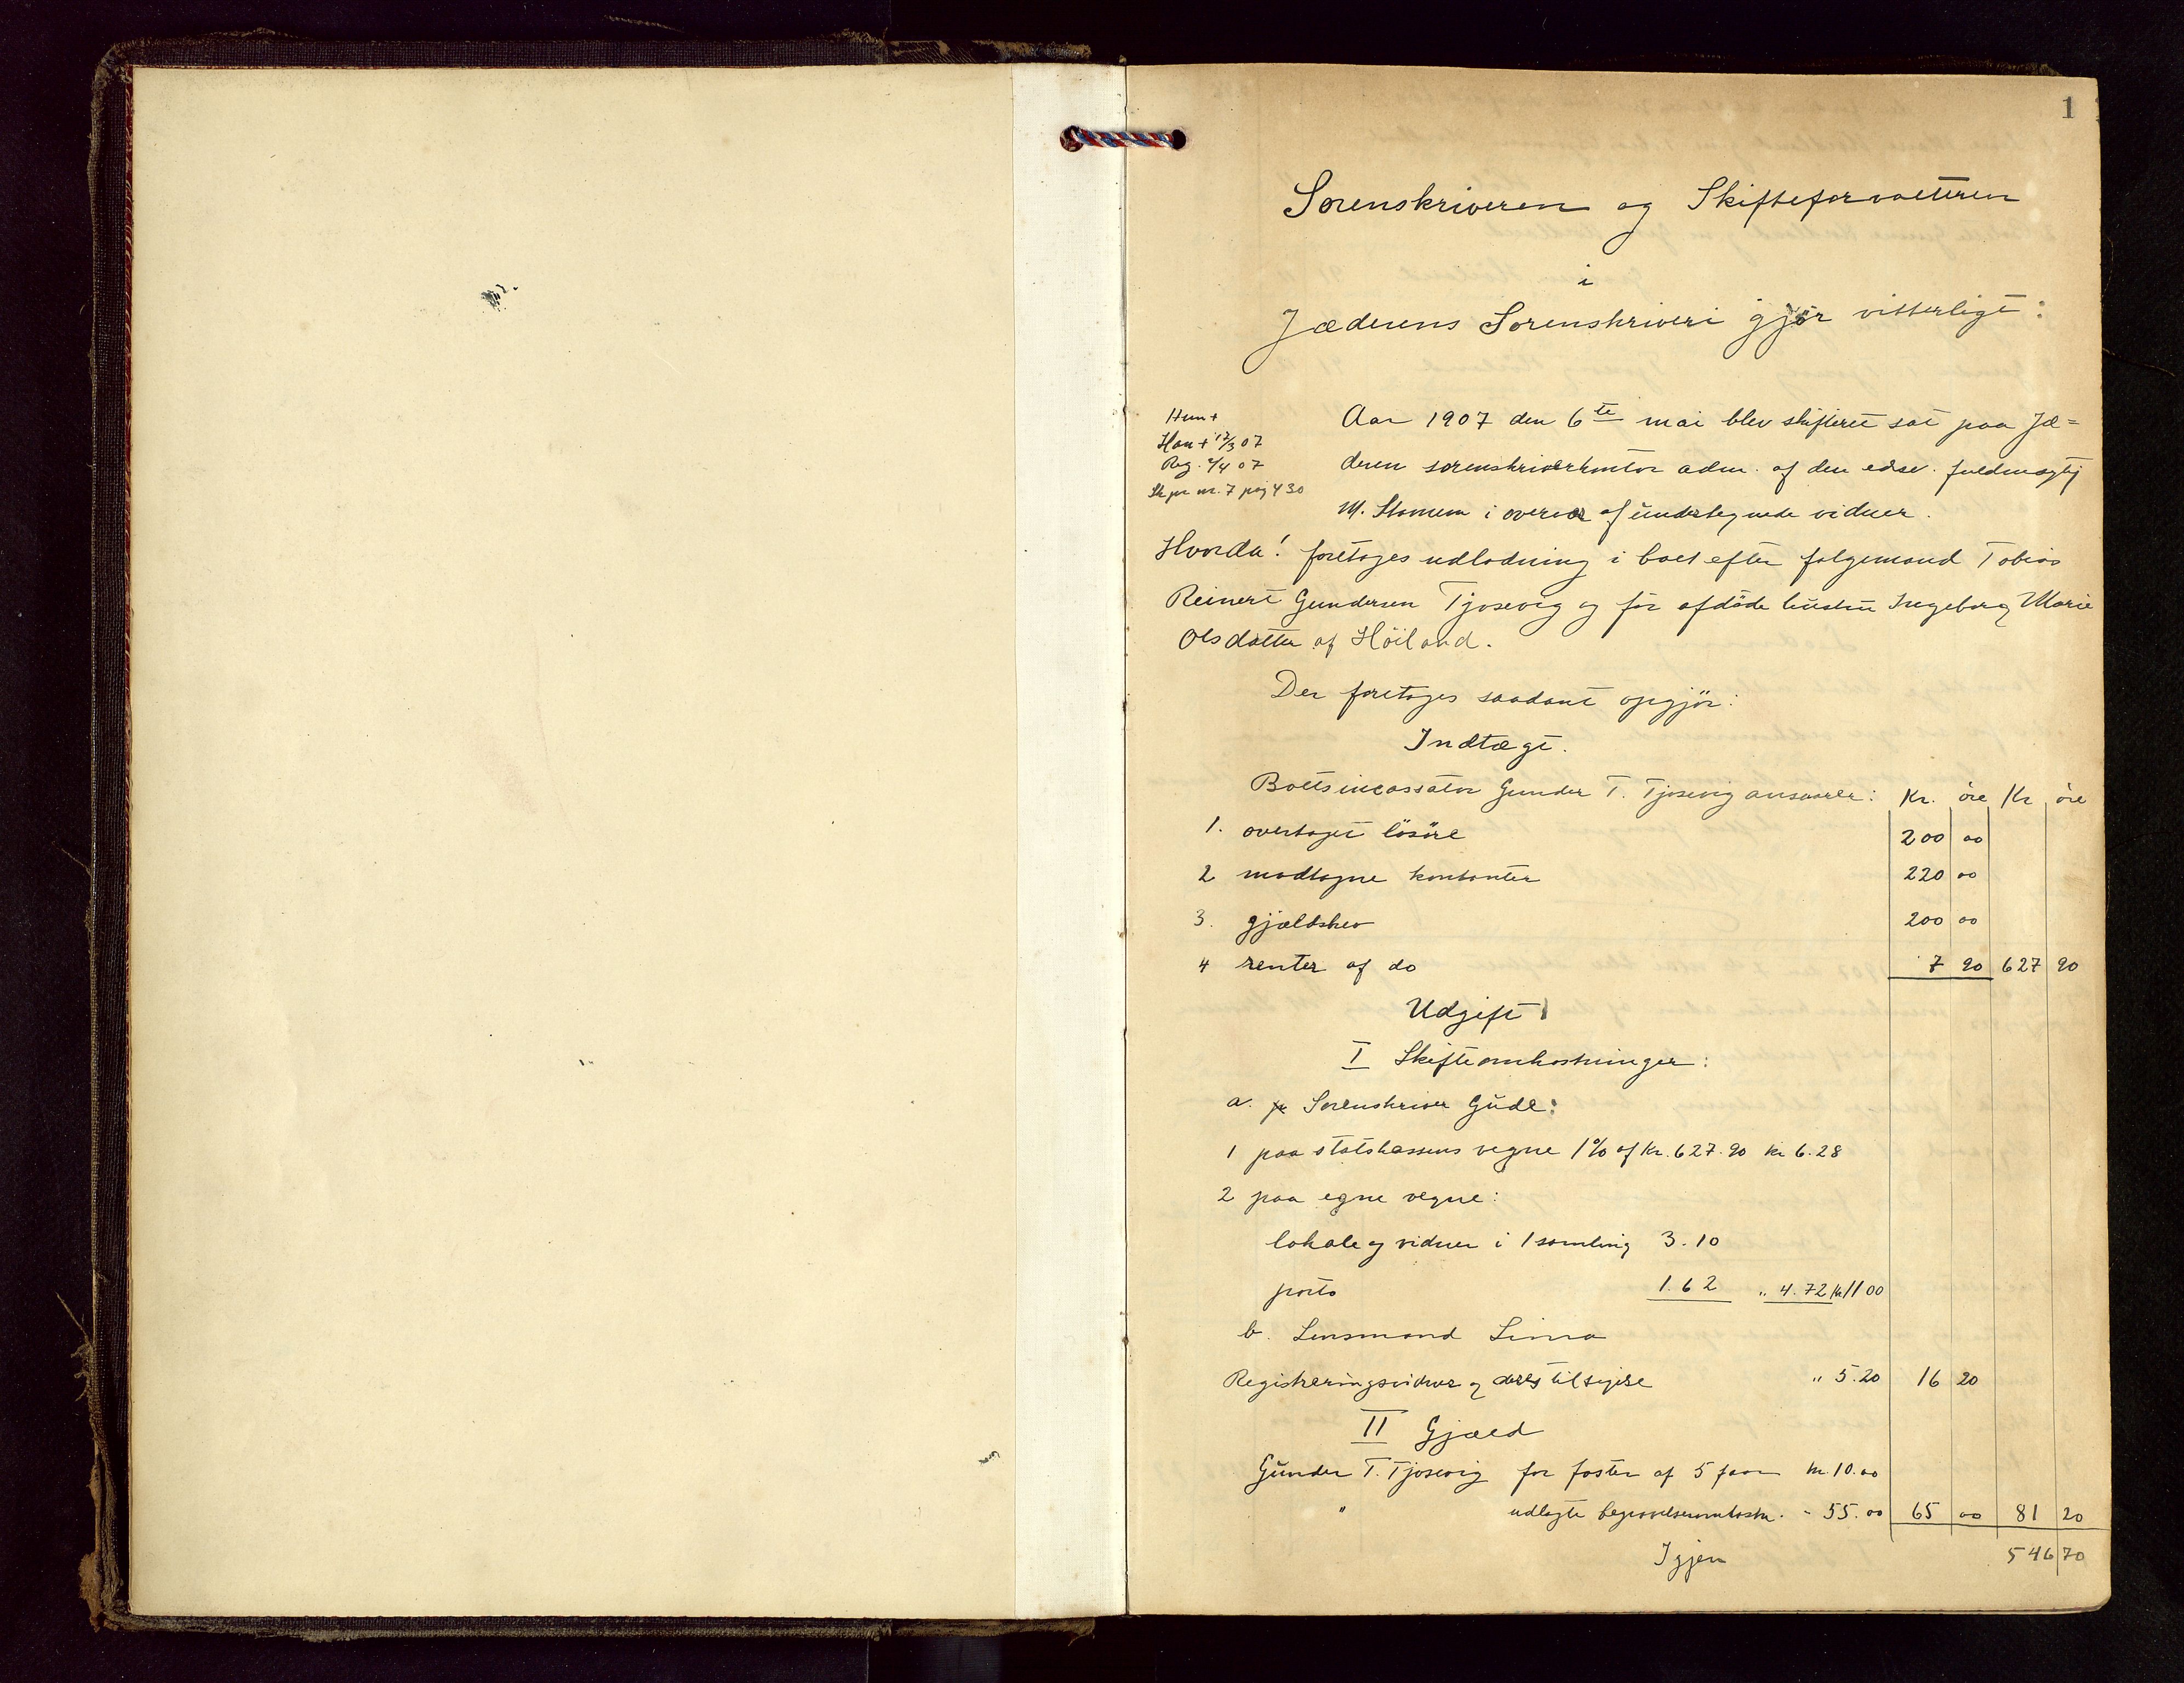 1
Sorenskriveren og Skifteforvalteren
i
Jæderens Sorenskriveri gjör vitterligt:
Hun +
Han + 12/3 07
Reg. 2/4 07
Sk pr nr. 7 pag 430
Aar 1907 den 6te mai blev skifteret sat paa Jæ=
deren sorenskriverkontor adm. af den edsv. fuldmægtig
M. Stamem i overvær af undertegnede vidner.
Hvorda! foretoges udlodning i boet efter følgemand Tobias
Reinert Gundersen Tjosevig og før afdöde hustru Ingeborg Marie
Olsdatter af Höiland.
Der foretoges saadant opgjör:
Indtægt.
Boets incassator Gunder T. Tjosevig ansvarer: Kr. öre Kr öre
1. overtaget lösöre 200 00
2 modtagne kontanter 220 00
3. gjældsbev 200 00
4 renter af do 7 90 627 90
Udgift
I Skifteomkostninger:
a. Sorenskriver Gude:
1 paa statskassens vegne 1% af Kr. 627.90 kr 6.28
2 paa egne vegne:
lokale og vidner i 1 samling 3.10
porto 1.62 " 4.72 kr 11 00
b. Lensmand Lima
Registreringsvidner og deres tilsigelse " 5.20 16 20
II Gjæld
Gunder T. Tjosevig for foster af 5 faar kr. 10.00
" udlagte begravelsesomkostn. - 55.00 65 00 81 20
Igjen 546 70